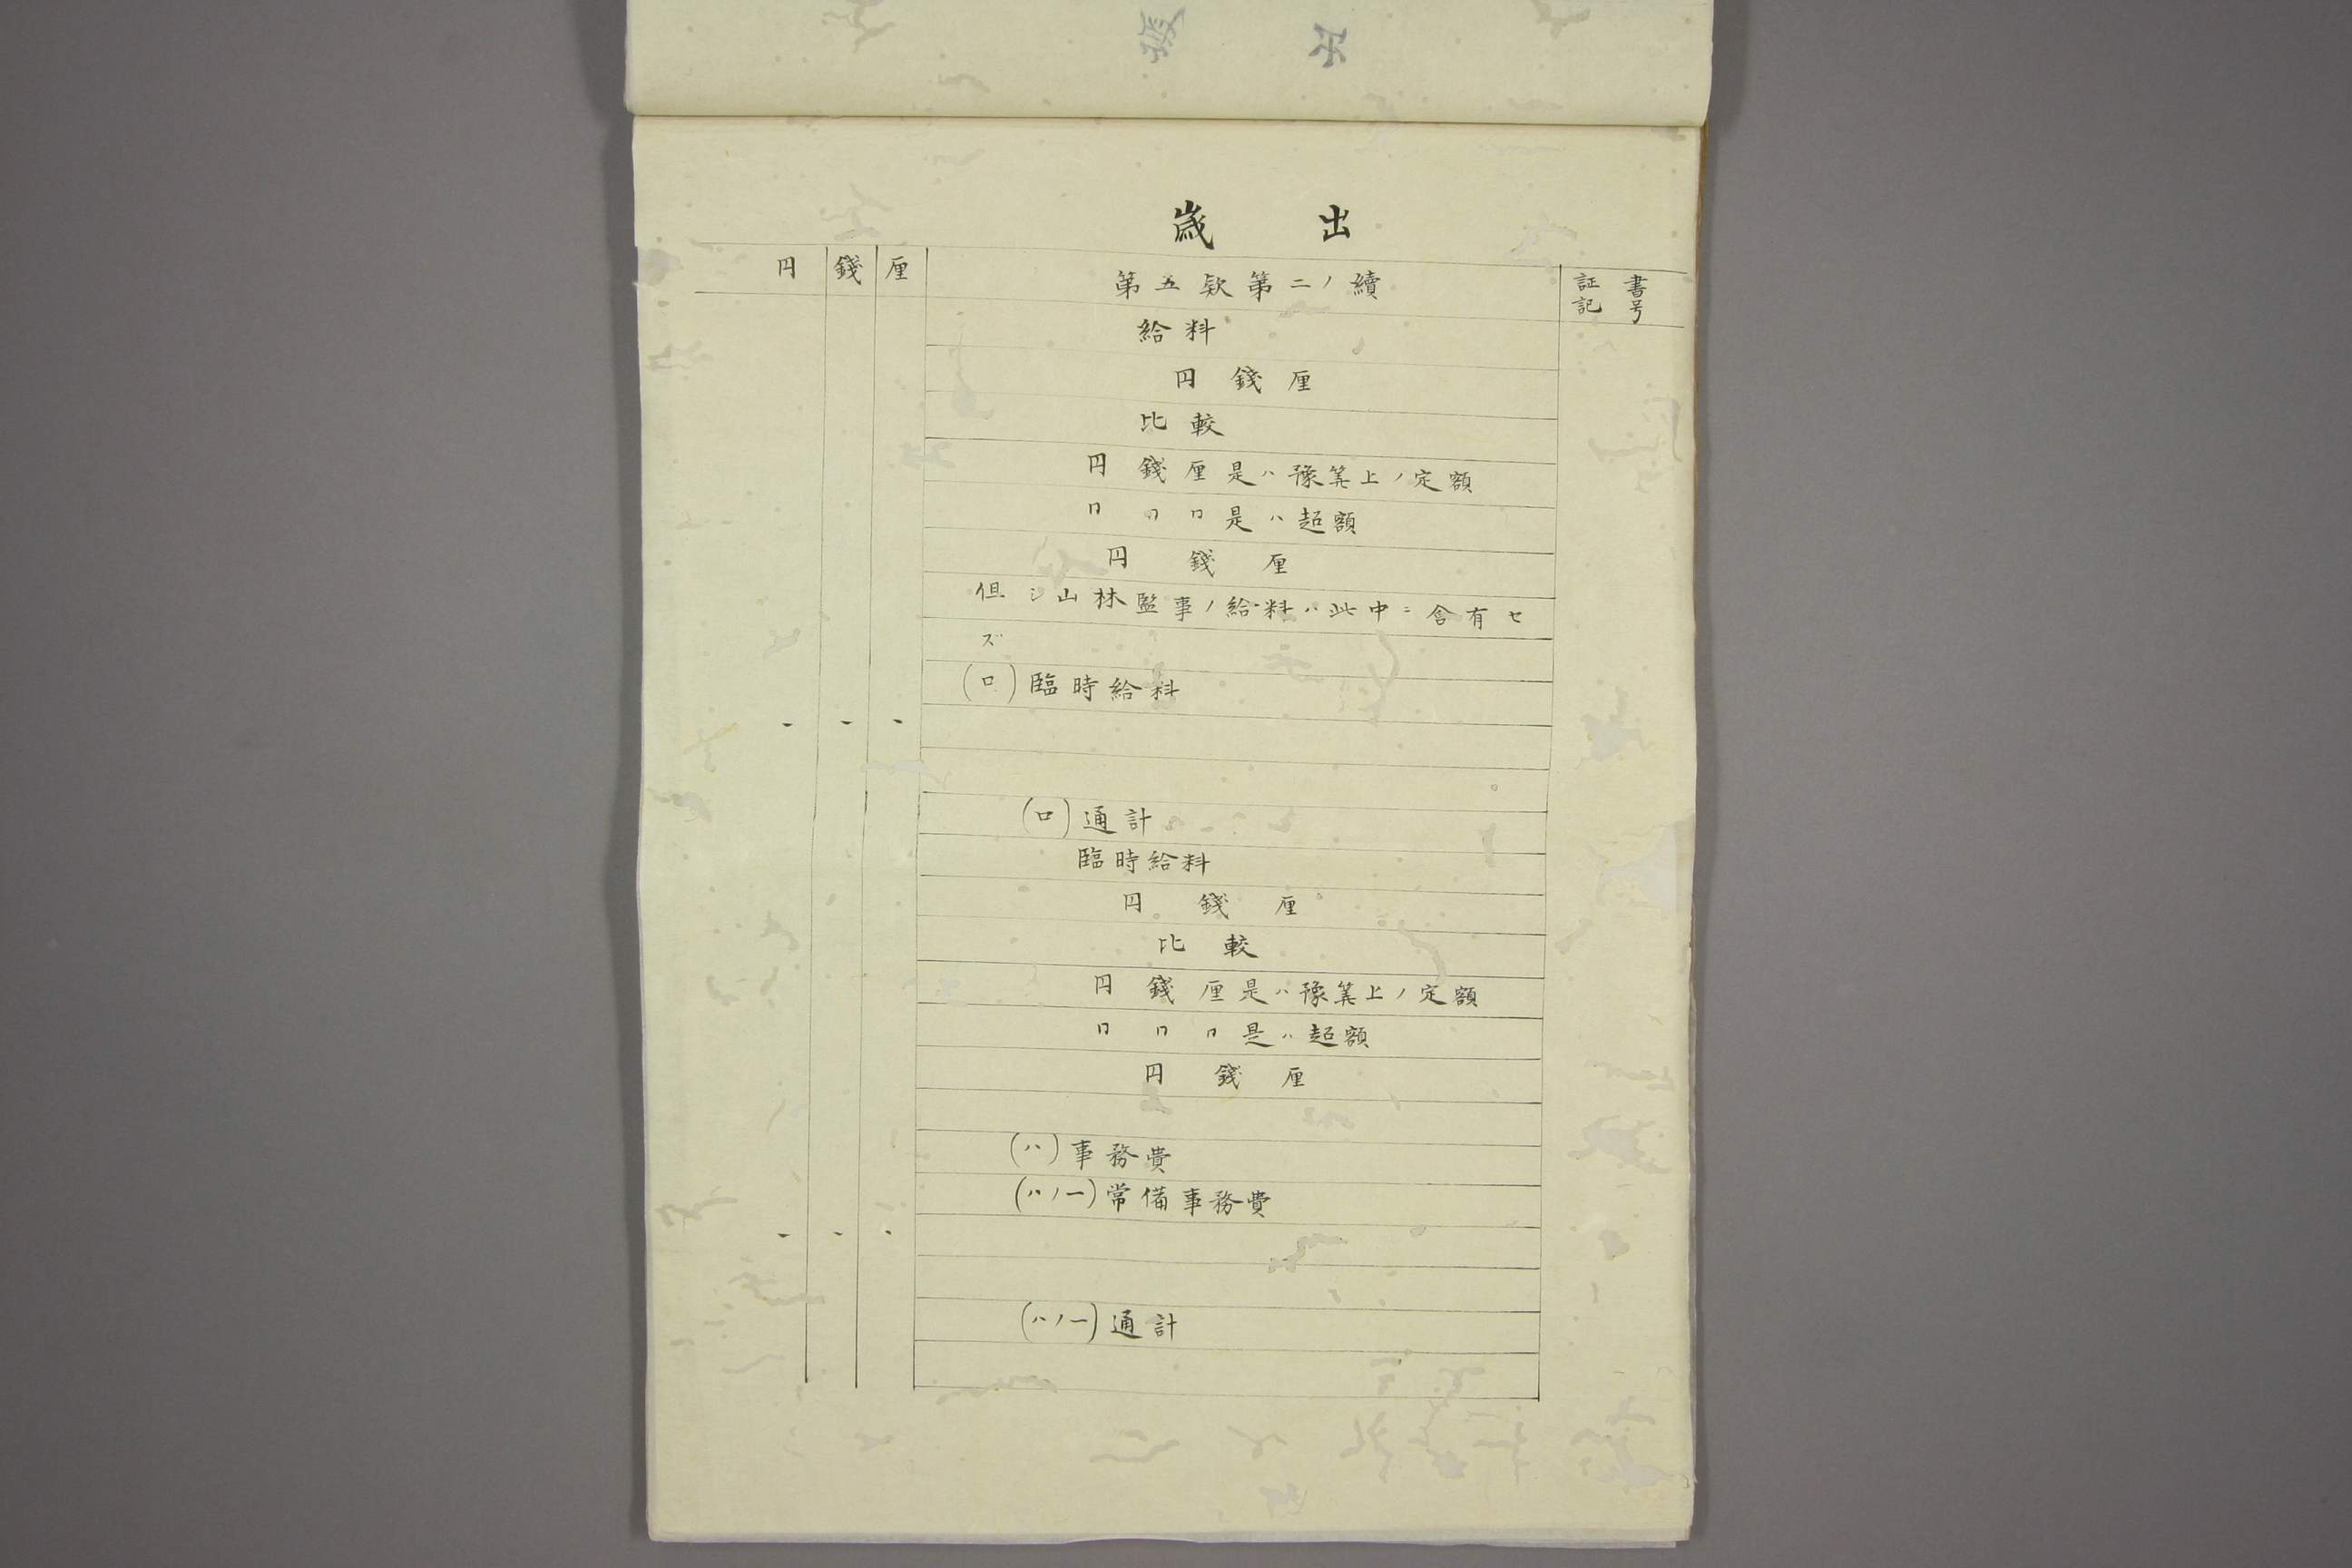 歳出
円 錢 厘 第五欵第二ノ續 証書
記号
給料
円 錢 厘
比較
円 錢 厘 是ハ豫筭上ノ定額
〃 〃 〃 是ハ超額
円 錢 厘
但シ山林監事ノ給料ハ此中ニ含有セ
ズ
(ロ)臨時給料
(ロ)通計
臨時給料
円 錢 厘
比較
円 錢 厘 是ハ豫筭上ノ定額
〃 〃 〃 是ハ超額
円 錢 厘
(ハ)事務費
(ハノ一)常備事務費
(ハノ一)通計